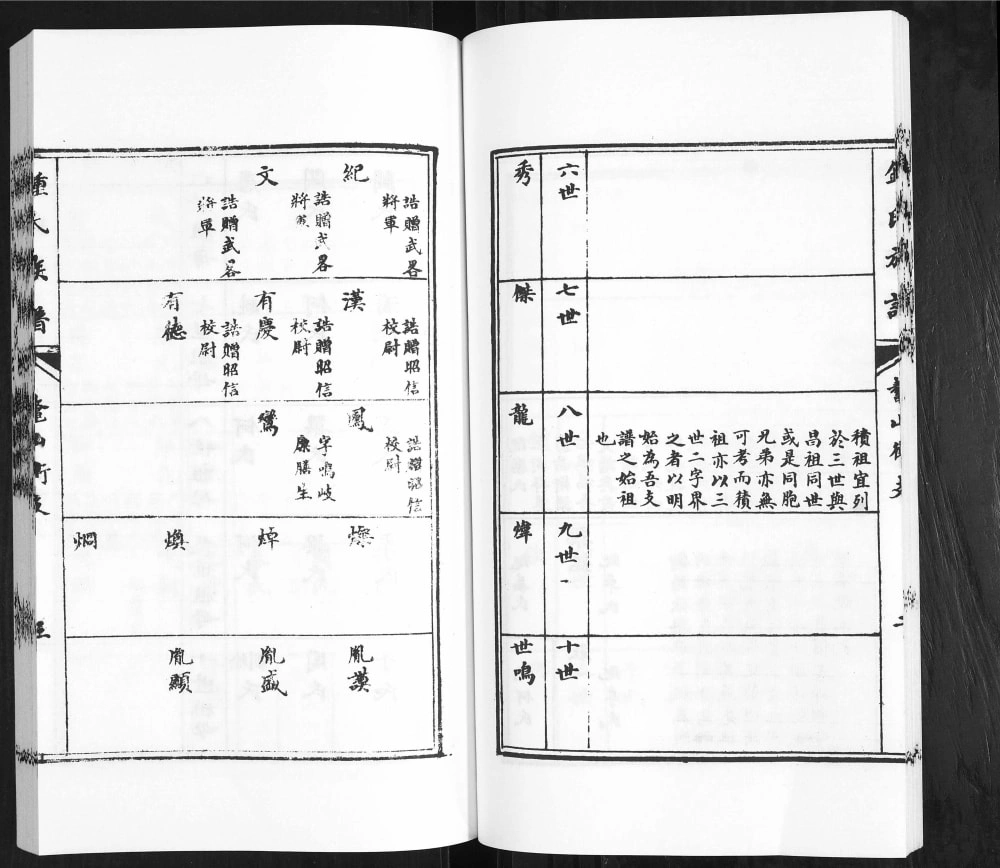 積祖宜列
於三世與
昌祖同世
或是同胞
兄弟亦無
可考而積
祖亦以三
世二字界
之者以明
始為吾支
譜之始祖
也
六世
七世
八世
九世
十世
秀
傑
龍
煒
世鳴
紀
誥贈武畧
將軍
文
誥贈武畧
將軍
誥贈武畧
將軍
漢
誥贈昭信
校尉
有慶
誥贈昭信
校尉
有德
誥贈昭信
校尉
鳳
誥贈昭信
校尉
鸞
字鳴岐
廩膳生
燦
焯
煥
烱
胤漢
胤盛
胤顯
族譜
三